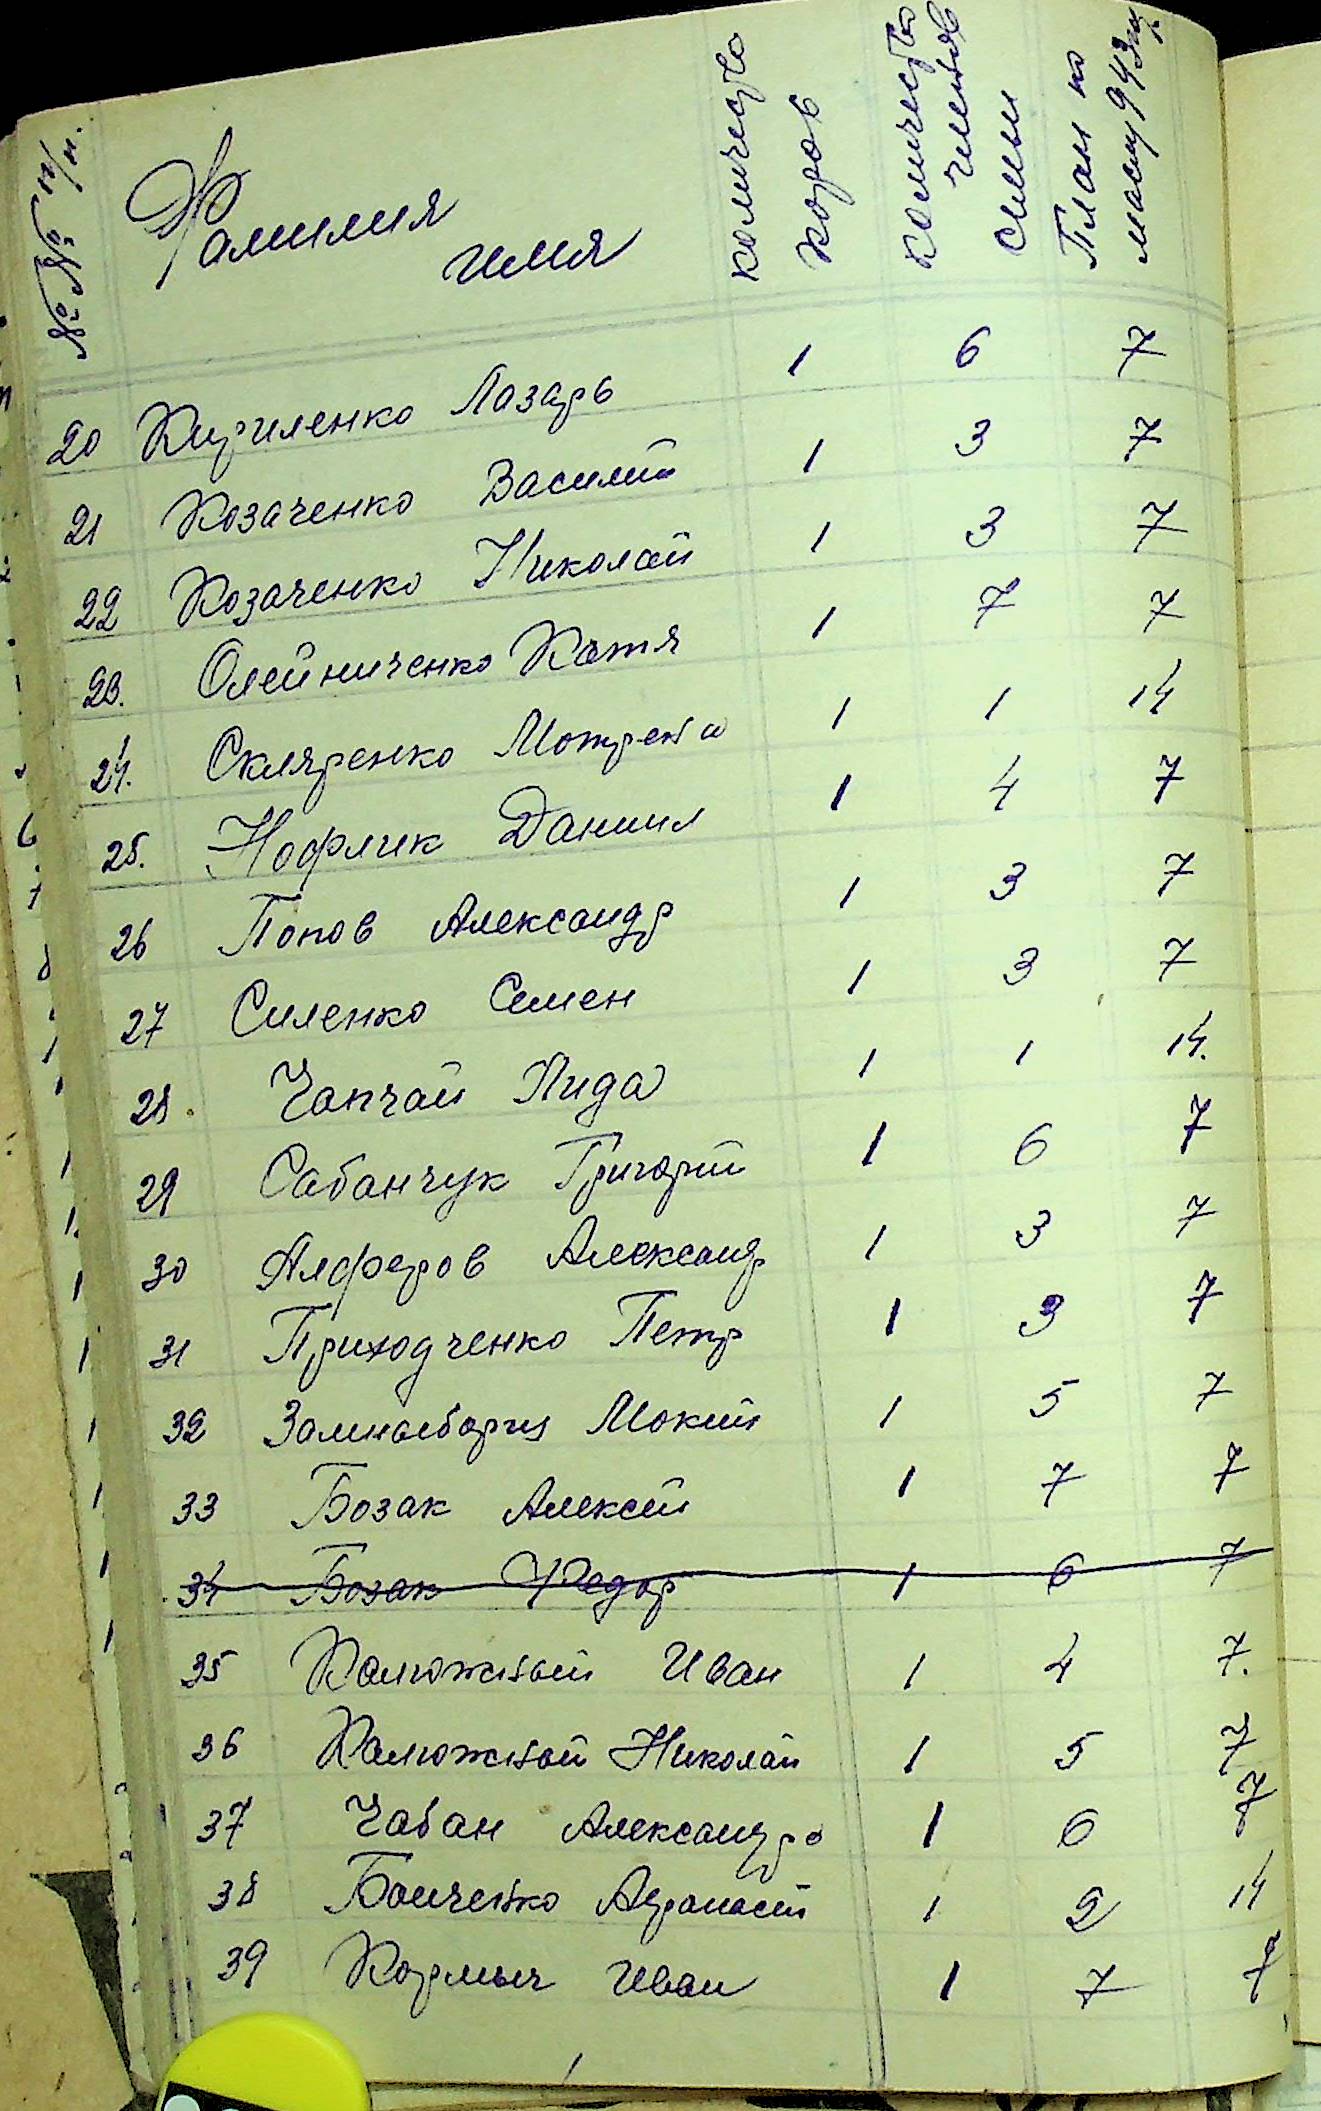 №№ п/п. Фамилия имя количество коров количество членов семьи План по маслу 943
20 Кириленко Лазарь 1 6 7
21 Козаченко Василий 1 3 7
22 Козаченко Николай 1 3 7
23. Олейниченко Катя 1 7 7
24. Скляренко Мотрена 1 1 14
25. Нофлик Даниил 1 4 7
26 Попов Александр 1 3 7
27 Силенко Семен 1 3 7
28. Чапчай Лида 1 1 14.
29 Сабанчук Григорий 1 6 7
30 Алферов Александр 1 3 7
31 Приходченко Петр 1 3 7
32 Мокий 1 5 7
33 Бозак Алексей 1 7 7
34 Бозак Федор 1 6 7
35 Калюжный Иван 1 4 7.
36 Калюжный Николай 1 5 7
37 Чабан Александра 1 6 7
38 Бойченко Афанасий 1 2 14
39 Кормыч Иван 1 7 7